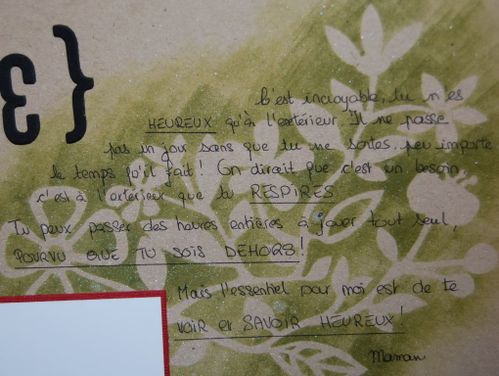 C'est incroyable, tu n'es
HEUREUX qu'à l'extérieur. Il ne passe
pas un jour sans que tu ne sortes, peu importe
le temps qu'il fait! On dirait que c'est un besoin
c'est à l'extérieur que tu RESPIRES
Tu peux passer des heures entières à jouer tout seul,
POURVU QUE TU SOIS DEHORS!
Mais l'essentiel pour moi est de te
VOIR et SAVOIR HEUREUX!
Maman